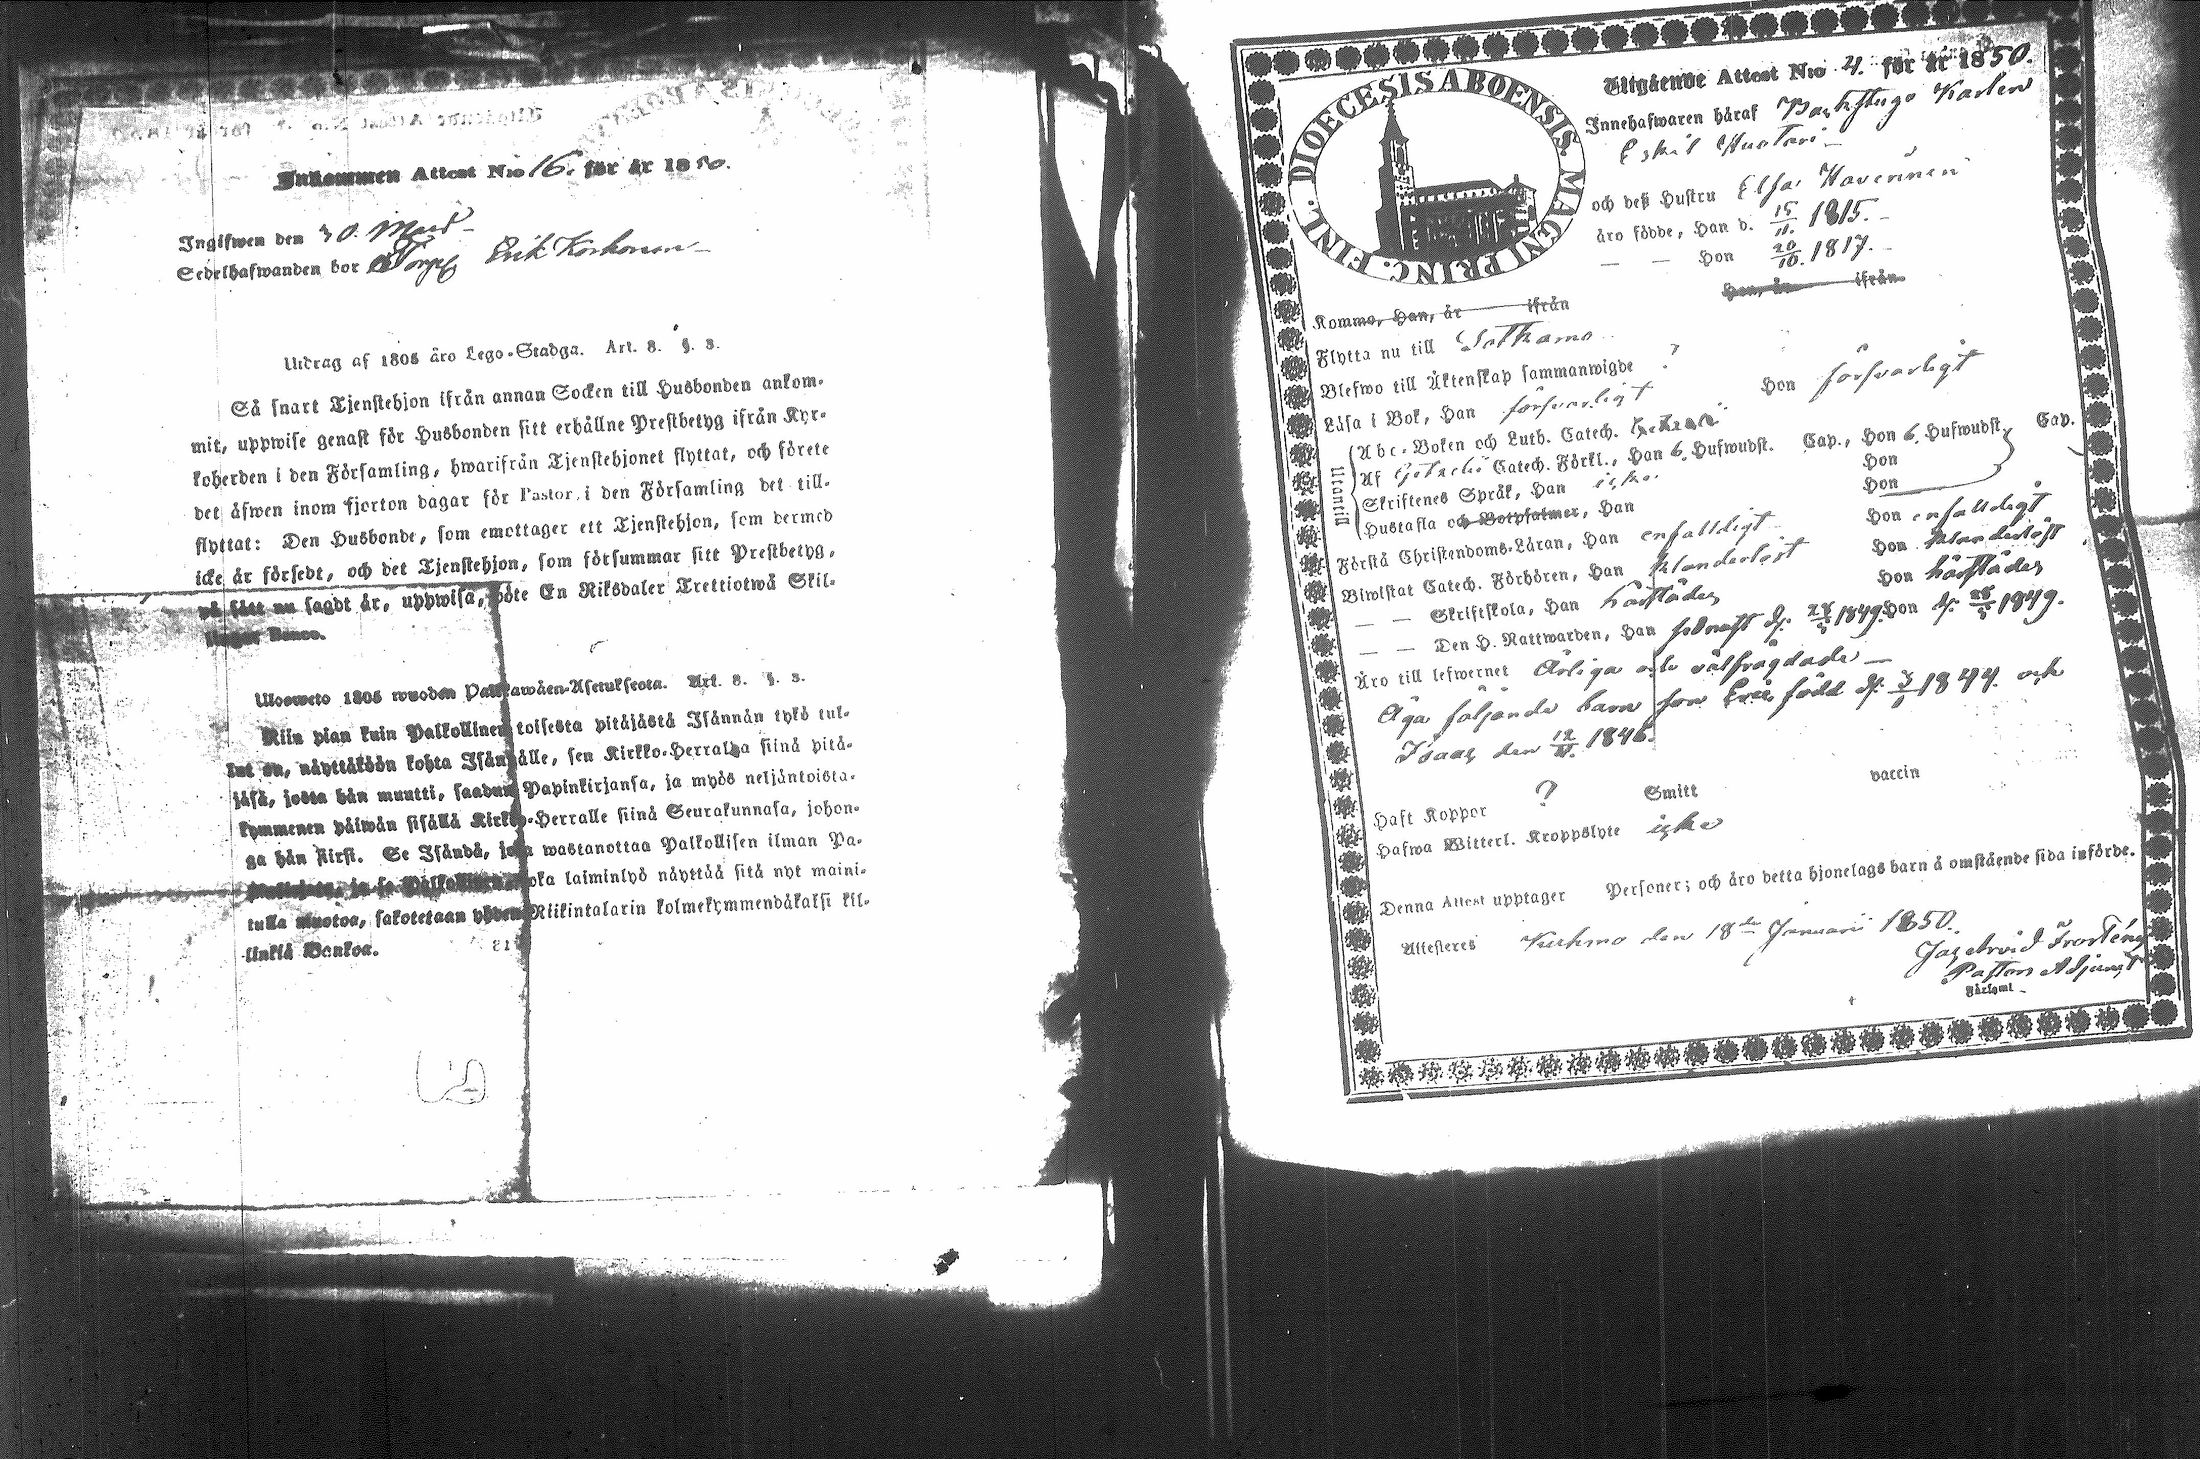 Inkommen Attest N:o 16. för år 1850.
Ingifwen den 30. Mars
Sedelhafwanden bor Torp Erik Korhonen
Utdrag af 1805 års Lego-Stadga. Art. 8. §. 3.
Så snart Tjenstehjon ifrån annan Socken till Husbonden ankom-
mit, uppwise genast för Husbonden sitt erhållne Prestbetyg ifrån Kyr-
koherden i den Församling, hwarifrån Tjenstehjonet flyttat, och förete
det äfwen inom fjorton dagar för Pastor i den Församling det till-
flyttat: Den Husbonde, som emottager ett Tjenstehjon, som dermed
icke är försedt, och det Tjenstehjon, som försummar sitt Prestbetyg,
på sätt nu sagdt är, uppwisa, böte En Riksdaler Trettiotwå Skil-
lingar Banco.
Ulosweto 1805 wuoden Palkawäen-Asetuksesta. Art. 8. §. 3.
Niin pian kuin Palkollinen toisesta pitäjästä Isännän tykö tul-
lut on, näyttäköön kohta Isännälle, sen Kirkko-Herralta siinä pitä-
jäsä, josta hän muutti, saadun Papinkirjansa, ja myös neljäntoista-
kymmenen päiwän sisällä Kirkko-Herralle siinä Seurakunnasa, johon-
ga hän siirsi. Se Isändä, joka wastanottaa Palkollisen ilman Pa-
pinkirjata, ja se Palkollinen joka laiminlyö näyttää sitä nyt maini-
tulla muotoa, sakotetaan yhden Riikintalarin kolmekymmendäkaksi kil-
linkiä Bankoa.
DIOECESIS ABOENSIS. MAGNI PRINC. FINL.
Utgående Attest N:o 4. för år 1850.
Innehafwaren häraf Backstugo Karlen
Eskil Huotari
och deß Hustru Elsa Haverinen
äro födde, Han d. 15/11. 1815.
— — Hon 20/10. 1817.
Kommo, Han, år ifrån Hon, år ifrån
Flytta nu till Sotkamo
Blefwo till Äktenskap sammanwigde ?
Läsa i Bok, Han försvarligt Hon försvarligt
Utantill
Abc-Boken och Luth. Catech.
Af Gotzchi Catech. Förkl., Han 6. Hufwudst. Cap., Hon 6. Hufwudst. Cap.
Skriftenes Språk, Han icke. Hon
Hustafla och Botpsalmer, Han Hon
Förstå Christendoms-Läran, Han enfaldigt Hon enfaldigt
Biwistat Catech. Förhören, Han klanderlöst Hon klanderlöst
— — Skriftskola, Han härstädes Hon härstädes
— — Den H. Nattwarden, Han sednast d. 1849. Hon d. 1849.
Äro till lefwernet Ärliga och välfrägdade
Äga följande barn son Eric född d. 1844. och
Isaac den 1846.
Haft Koppor ? Smitt vaccin
Hafwa Witterl. Kroppslyte icke
Denna Attest upptager Personer; och äro detta hjonelags barn å omstående sida införde.
Attesteres Kuhmo den 18de Januarii 1850.
Jac. Arvid Frosterus
Pastors Adjunct
Förlaml.